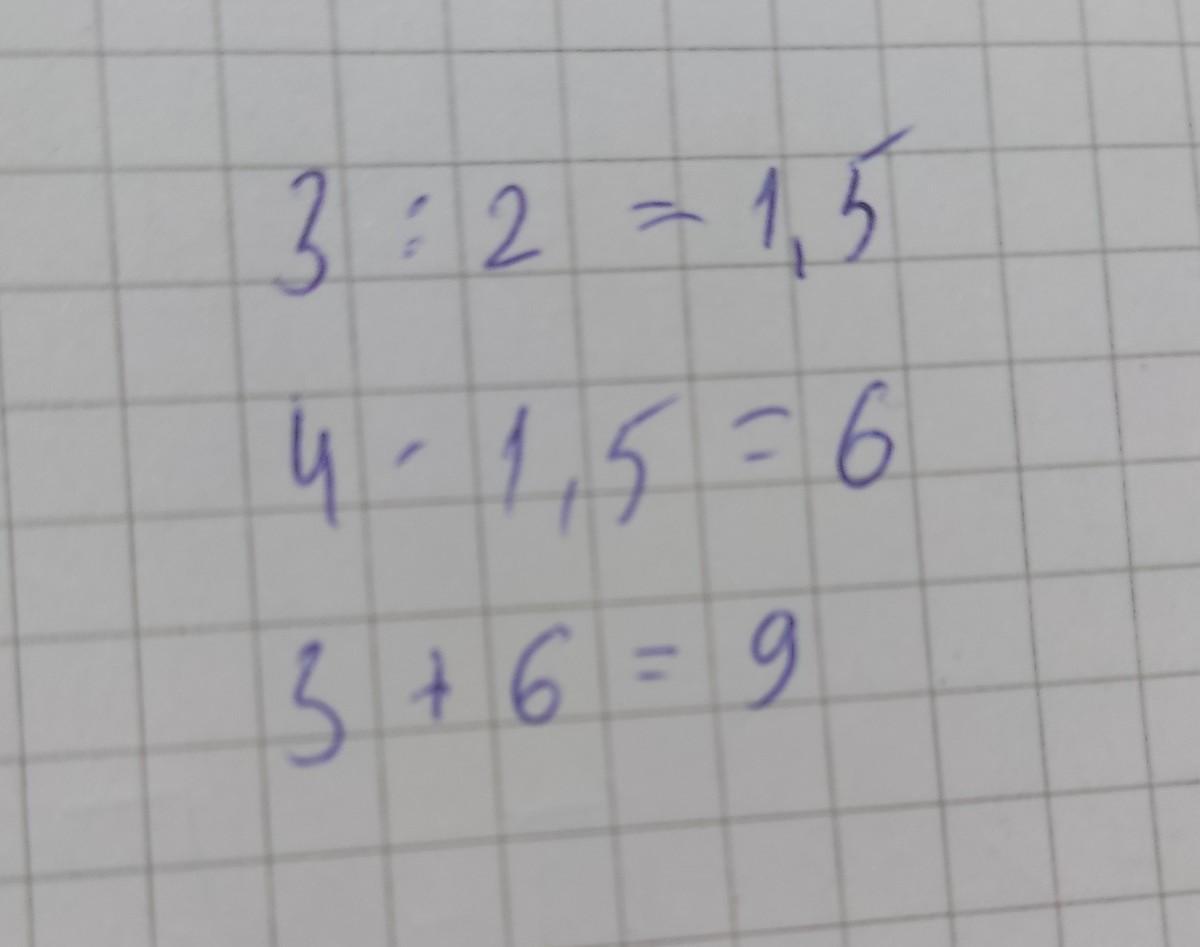 3 : 2 = 1,5
4 - 1,5 = 6
3 + 6 = 9